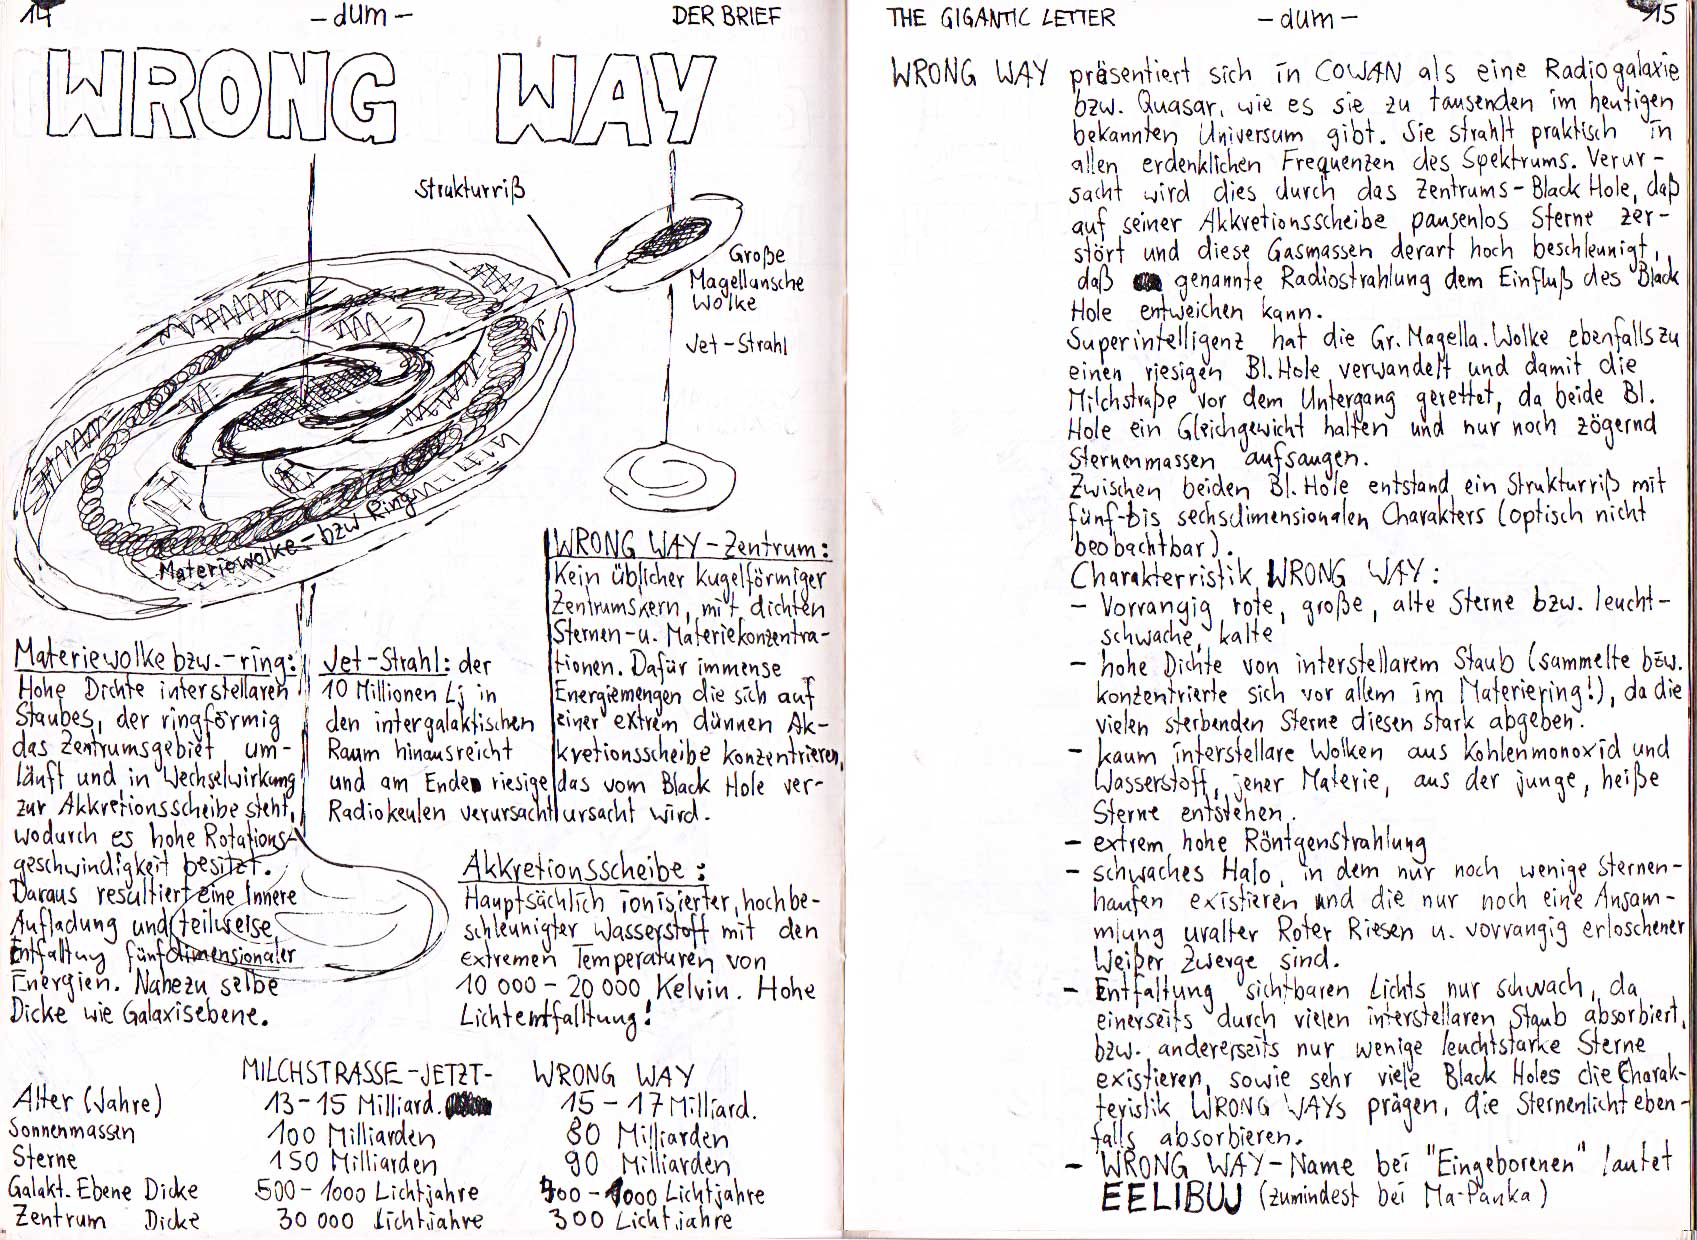 14 -dum- DER BRIEF
WRONG WAY
Strukturriß
Große
Magellansche
Wolke
Jet-Strahl
Materiewolke- bzw Ring
WRONG WAY-Zentrum:
Kein üblicher kugelförmiger
Zentrumskern, mit dichten
Sternen-u. Materiekonzentra-
tionen. Dafür immense
Energiemengen die sich auf
einer extrem dünnen Ak-
kretionsscheibe konzentrieren,
das vom Black Hole ver-
ursacht wird.
Materiewolke bzw.-ring:
Hohe Dichte interstellaren
Staubes, der ringförmig
das Zentrumsgebiet um-
läuft und in Wechselwirkung
zur Akkretionsscheibe steht,
wodurch es hohe Rotations-
geschwindigkeit besitzt.
Daraus resultiert eine Innere
Aufladung und teilweise
Entfaltung fünfdimensionaler
Energien. Nahezu selbe
Dicke wie Galaxisebene.
Jet-Strahl: der
10 Millionen Lj in
den intergalaktischen
Raum hinausreicht
und am Ende riesige
Radiokeulen verursacht
Akkretionsscheibe:
Hauptsächlich ionisierter, hochbe-
schleunigter Wasserstoff mit den
extremen Temperaturen von
10 000 - 20 000 Kelvin. Hohe
Lichtentfalltung!
MILCHSTRASSE-JETZT- WRONG WAY
Alter (Jahre) 13-15 Milliard. 15-17 Milliard.
Sonnenmassen 100 Milliarden 80 Milliarden
Sterne 150 Milliarden 90 Milliarden
Galakt. Ebene Dicke 500-1000 Lichtjahre 700-1000 Lichtjahre
Zentrum Dicke 30 000 Lichtjahre 300 Lichtjahre
THE GIGANTIC LETTER -dum- 15
WRONG WAY präsentiert sich in COWAN als eine Radiogalaxie
bzw. Quasar, wie es sie zu tausenden im heutigen
bekannten Universum gibt. Sie strahlt praktisch in
allen erdenklichen Frequenzen des Spektrums. Verur-
sacht wird dies durch das Zentrums-Black Hole, daß
auf seiner Akkretionsscheibe pausenlos Sterne zer-
stört und diese Gasmassen derart hoch beschleunigt,
daß genannte Radiostrahlung dem Einfluß des Black
Hole entweichen kann.
Superintelligenz hat die Gr. Magella. Wolke ebenfalls zu
einen riesigen Bl. Hole verwandelt und damit die
Milchstraße vor dem Untergang gerettet, da beide Bl.
Hole ein Gleichgewicht halten und nur noch zögernd
Sternenmassen aufsaugen.
Zwischen beiden Bl. Hole entstand ein Strukturriß mit
fünf-bis sechsdimensionalen Charakters (optisch nicht
beobachtbar).
Charakterristik WRONG WAY:
- Vorrangig rote, große, alte Sterne bzw. leucht-
schwache, kalte
- hohe Dichte von interstellarem Staub (sammelte bzw.
konzentrierte sich vor allem im Materiering!), da die
vielen sterbenden Sterne diesen stark abgeben.
- kaum interstellare Wolken aus Kohlenmonoxid und
Wasserstoff, jener Materie, aus der junge, heiße
Sterne entstehen.
- extrem hohe Röntgenstrahlung
- schwaches Halo, in dem nur noch wenige Sternen-
haufen existieren und die nur noch eine Ansam-
mlung uralter Roter Riesen u. vorrangig erloschener
Weißer Zwerge sind.
- Entfaltung sichtbaren Lichts nur schwach, da
einerseits durch vielen interstellaren Staub absorbiert,
bzw. andererseits nur wenige leuchtstarke Sterne
existieren, sowie sehr viele Black Holes die Charak-
teristik WRONG WAYs prägen, die Sternenlicht eben-
falls absorbieren.
- WRONG WAY-Name bei "Eingeborenen" lautet
EELIBUJ (zumindest bei Ma-Panka)